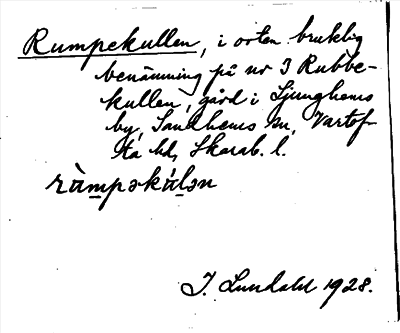 Rumpekullen, i orten bruklig
benämning på nr 3 Rubbe-
kullen, gård i Ljunghems
by, Sandhems sn, Vartof-
ta hd, Skarab. l.
rùmpəkùlən
J. Lundahl 1928.